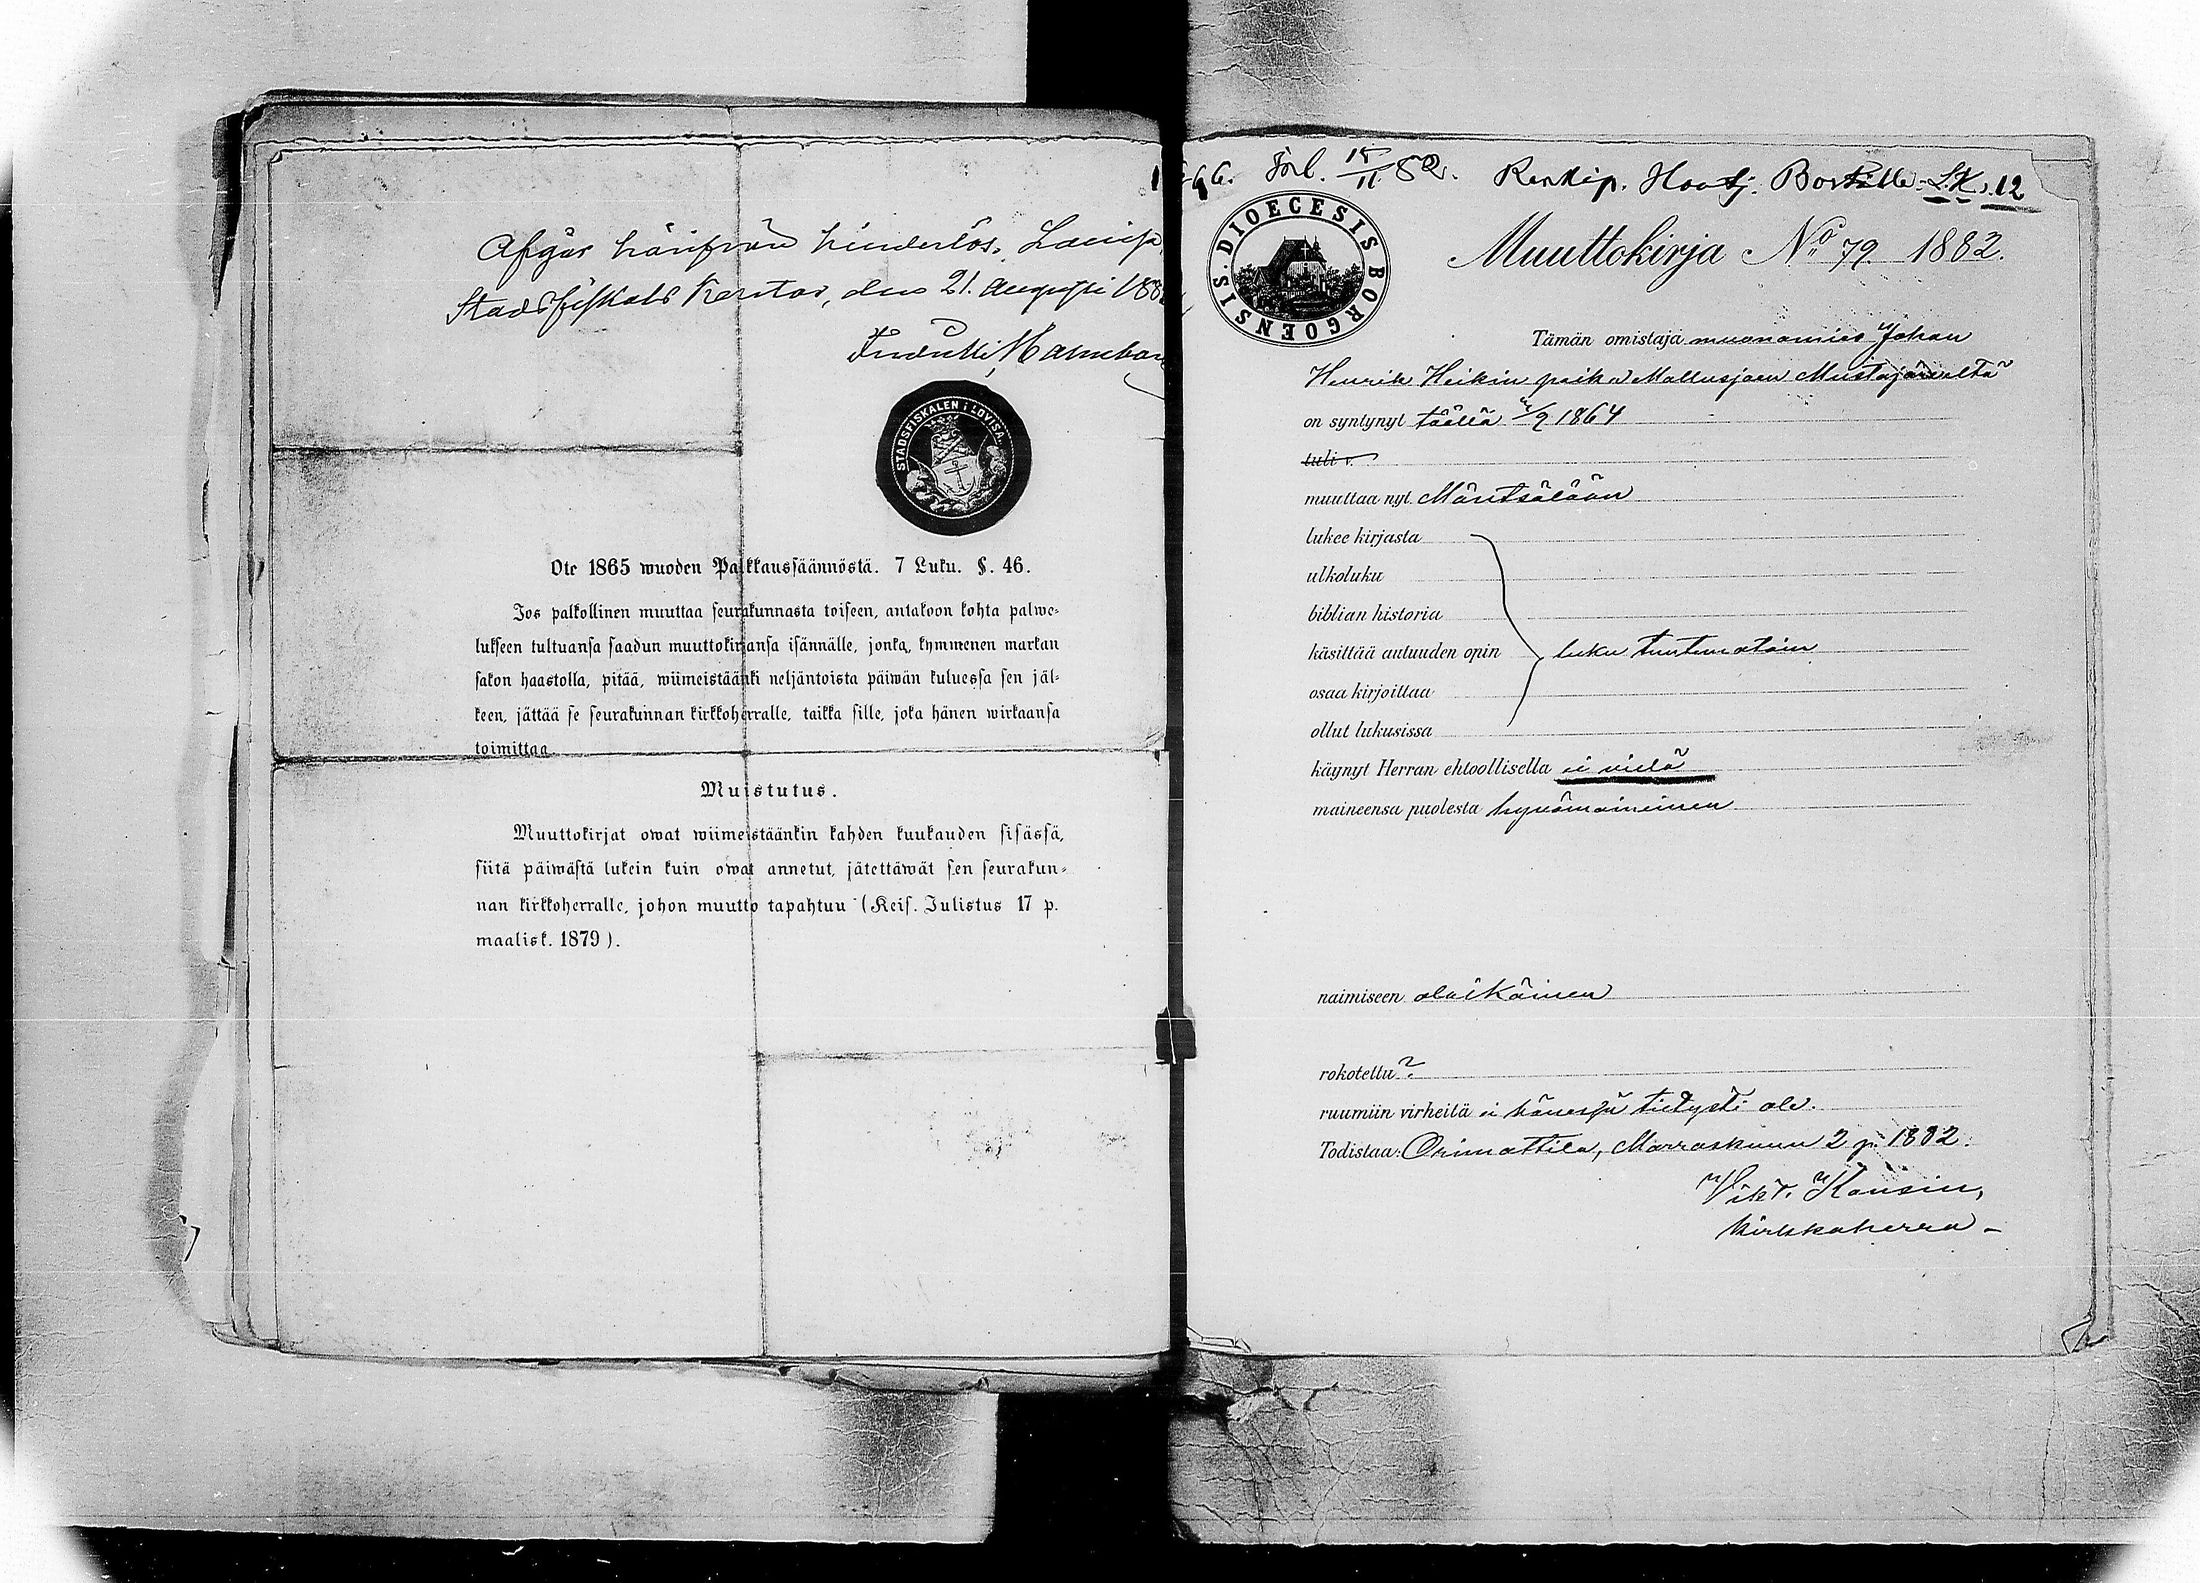 Afgår härifrån hinderlös. Lovisa
Stadsfiskals Kontor, den 21. Augusti 188
STADSFISKALEN I LOVISA
Ote 1865 wuoden Palkkaussäännöstä. 7 Luku. §. 46.
Jos palkollinen muuttaa seurakunnasta toiseen, antakoon kohta palwe-
lukseen tultuansa saadun muuttokirjansa isännälle, jonka, kymmenen markan
sakon haastolla, pitää, wiimeistäänki neljäntoista päiwän kuluessa sen jäl-
keen, jättää se seurakunnan kirkkoherralle, taikka sille, joka hänen wirkaansa
toimittaa
Muistutus.
Muuttokirjat owat wiimeistäänkin kahden kuukauden sisässä,
siitä päiwästä lukein kuin owat annetut, jätettäwät sen seurakun-
nan kirkkoherralle, johon muutto tapahtuu (Keis. Julistus 17 p.
maalisk. 1879).
66. Förl. 15/11 82. L.K. 12
DIOECESIS BORGOENSIS.
Muuttokirja No 79. 1882.
Tämän omistaja muonamies Johan
Henrik Heikin poika Mallusjoen Mustajärveltä
on syntynyt täällä /9 1864
tuli v.
muuttaa nyt Mäntsälään
lukee kirjasta
ulkoluku
biblian historia
käsittää autuuden opin luku tuntematoin
osaa kirjoittaa
ollut lukusissa
käynyt Herran ehtoollisella ei vielä
maineensa puolesta hyvämaineinen
naimiseen alaikäinen
rokotettu?
ruumiin virheitä ei hänessä tietysti ole.
Todistaa: Orimattila, Marraskuun 2 p. 1882.
Vikt. Konsin,
kirkkoherra